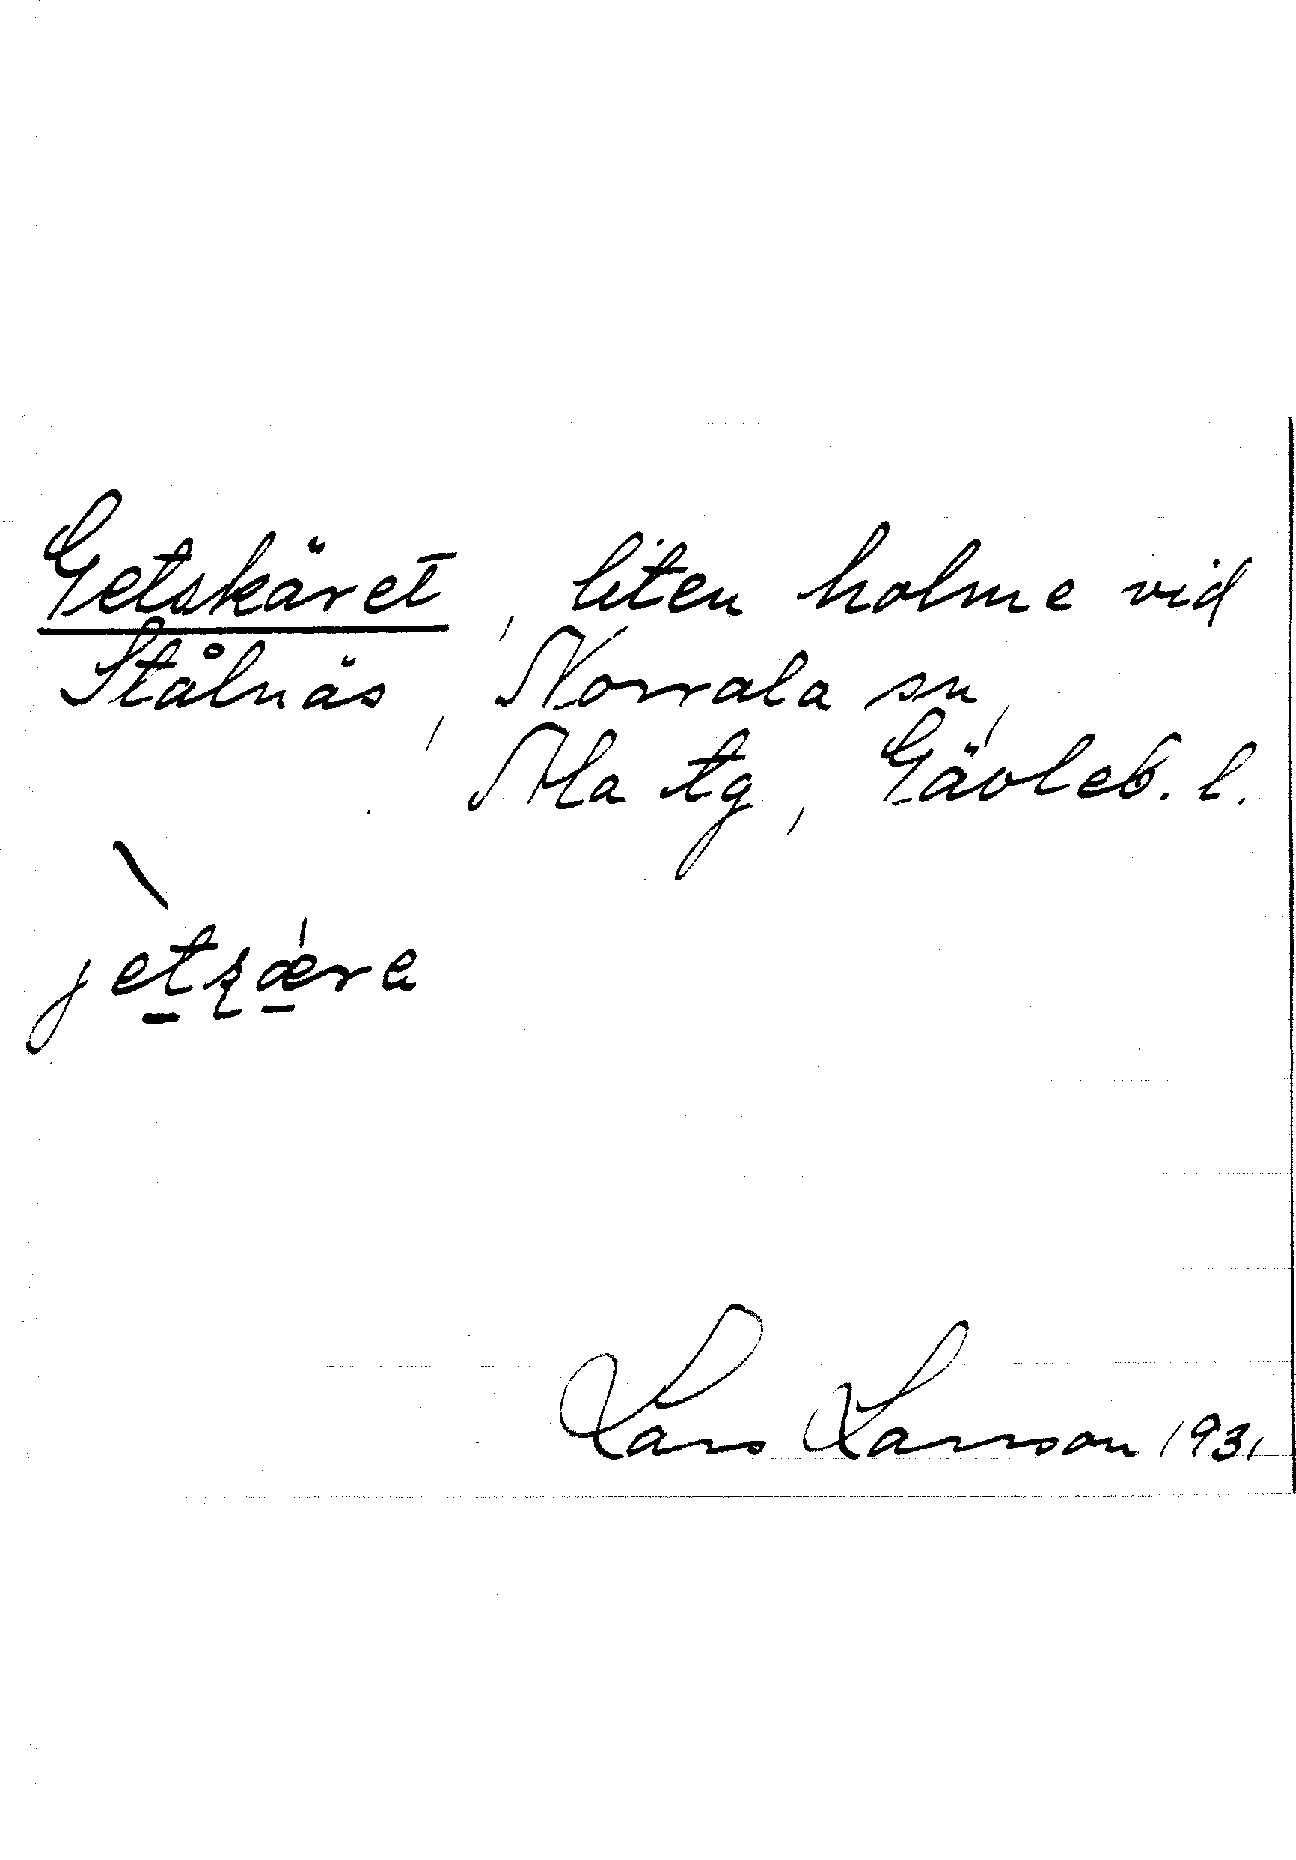 Getskäret, liten holme vid
Stålnäs, Norrala sn,
Ala tg, Gävleb. l.
jetʂære
Lars Larsson 1931